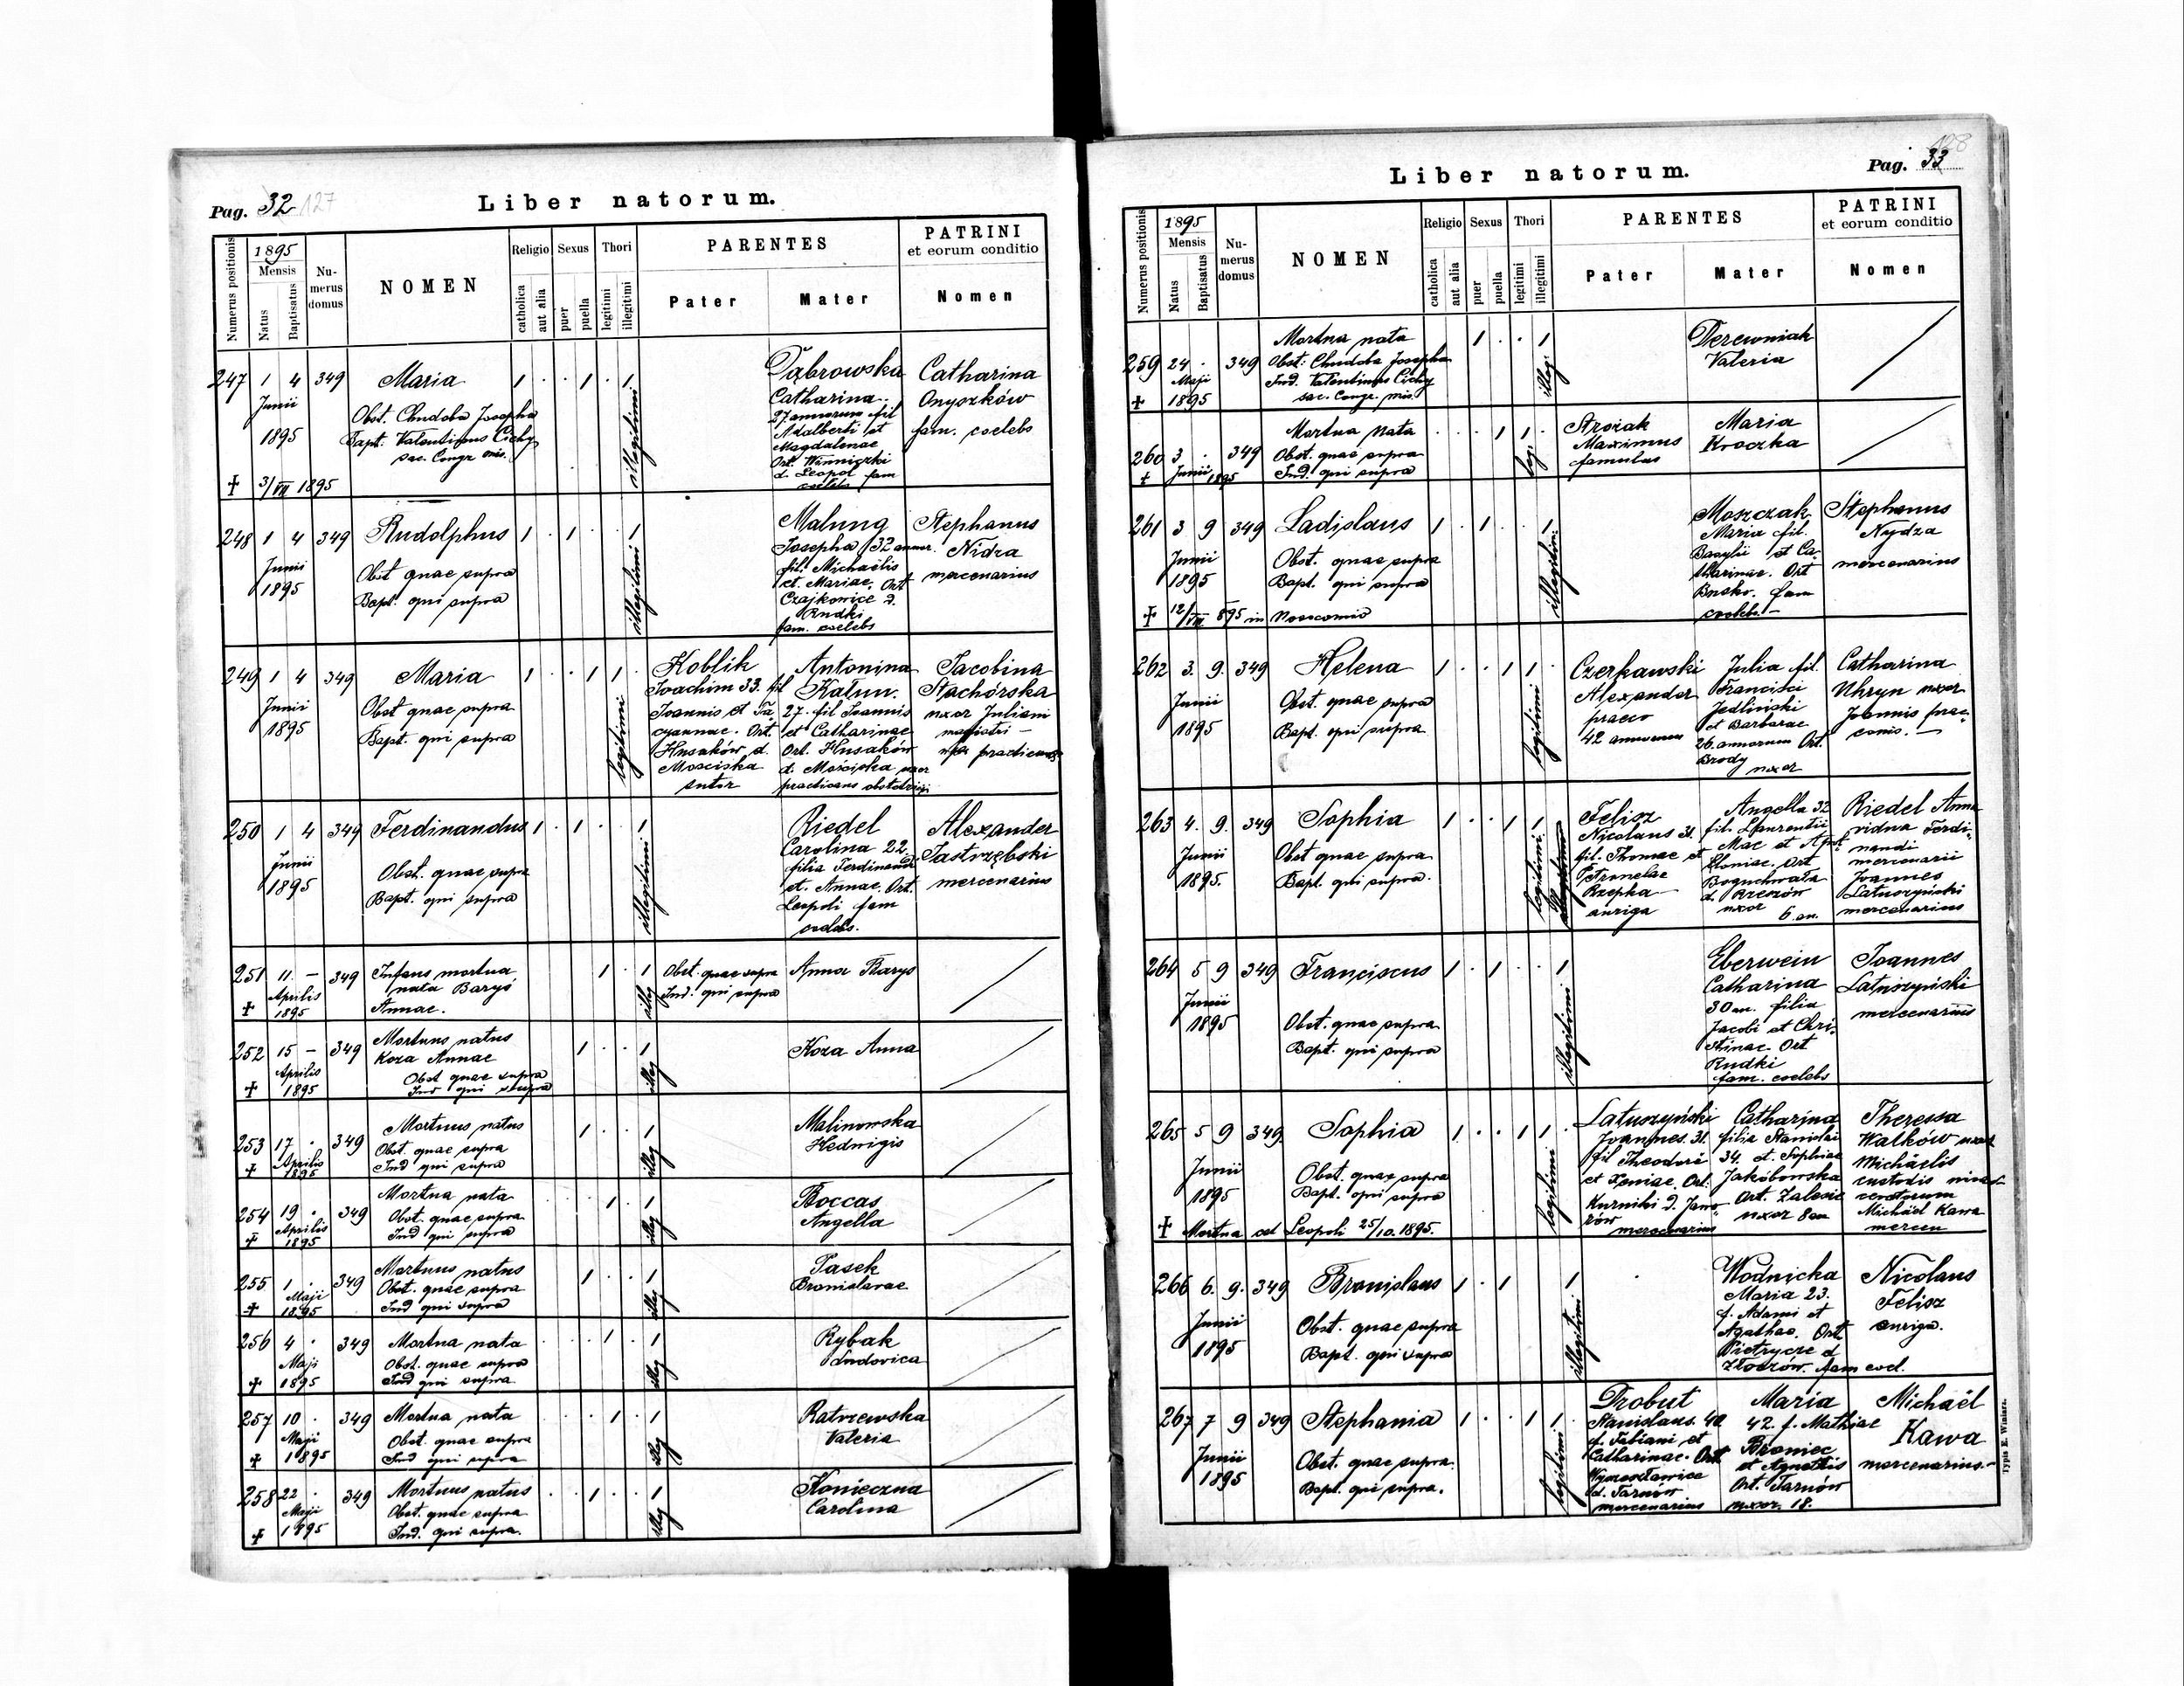 Pag. 32 127
Liber natorum.
Numerus positionis
1895
Mensis
Natus
Baptisatus
Nu-
merus
domus
NOMEN
Religio
catholica
aut alia
Sexus
puer
puella
Thori
legitimi
illegitimi
PARENTES
Pater
Mater
PATRINI
et eorum conditio
Nomen
247 1 4 349 Maria 1 . . 1 . 1
Junii
1895
Obst. Chudoba Josepha
Bapt. Valentinus Cichy
sac. Congr. mis.
† 3/VII 1895
illegitimi
Dąbrowska
Catharina
27 annorum fil
Adalberti et
Magdalenae
Ort. Winniczki
d. Leopol fam
coelebs
Catharina
Onyszków
fam. coelebs
248 1 4 349 Rudolphus 1 . 1 . . 1
Junii
1895
Obst quae supra
Bapt. qui supra
illegitimi
Malung
Josepha 32 annor.
fil. Michaëlis
et. Mariae. Ort
Czajkowice d.
Rudki
fam. coelebs
Stephanus
Nidza
mercenarius
249 1 4 349 Maria 1 . . 1 1 .
Junii
1895
Obst quae supra
Bapt. qui supra
legitimi
Koblik
Joachim 33. fil
Joannis et Ta
cyannae. Ort.
Husaków d.
Mosciska
sutor
Antonina
Katun.
27. fil Joannis
et Catharinae
Ort. Husaków
d. Mościska uxor
practicans obstetricii
Jacobina
Stachórska
uxor Juliani
250 1 4 349 Ferdinandus 1 . 1 . . 1
Junii
1895
Obst. quae supra
Bapt. qui supra
illegitimi
Riedel
Carolina 22
filia Ferdinandi
et. Annae. Ort.
Leopoli fam
coelebs.
Alexander
Jastrzębski
mercenarius
251 11 — 349 Infans mortua
nata Baryś
Annae.
Aprilis
† 1895
1 . 1
illeg
Obst. quae supra
Ind. qui supra
Anna Barys
252 15 — 349 Mortuus natus
Koza Annae
Aprilis
Obst quae supra
† 1895 Ind qui supra
1 . . 1
illeg
Koza Anna
253 17 . 349 Mortuus natus
Obst. quae supra
Aprilis
† 1895 Ind qui supra
1 . . 1
illeg
Malinowska
Hedwigis
254 19 . 349 Mortua nata
Aprilis Obst. quae supra
† 1895 Ind qui supra
1 . 1
illeg
Boccas
Angella
255 1 . 349 Mortuus natus
Maji Obst. quae supra
† 1895 Ind qui supra
1 . . 1
illeg
Pasek
Bronislavae
256 4 . 349 Mortua nata
Maji Obst. quae supra
† 1895 Ind qui supra
. . 1 . 1
illeg
Rybak
Ludovica
257 10 . 349 Mortua nata
Maji Obst. quae supra
† 1895 Ind qui supra
. . 1 . 1
illeg
Ratrzewska
Valeria
258 22 . 349 Mortuus natus
Maji Obst. quae supra
† 1895 Ind. qui supra.
. 1 . . 1
illeg
Konieczna
Carolina
128
Pag. 33
Liber natorum.
Numerus positionis
1895
Mensis
Natus
Baptisatus
Nu-
merus
domus
NOMEN
Religio
catholica
aut alia
Sexus
puer
puella
Thori
legitimi
illegitimi
PARENTES
Pater
Mater
PATRINI
et eorum conditio
Nomen
259 24 . 349 Mortua nata
Obst: Chudoba Josepha
Maji Ind. Valentinus Cichy
† 1895 sac. Congr. mis.
1 . . 1
illeg.
Derewniak
Valeria
260 3 . 349 Mortua nata
Obst. quae supra
† Junii 1895 Ind. qui supra
. . . 1 1 .
leg.
Stroiak
Maximus
famulus
Maria
Kroczka
261 3 9 349 Ladislaus 1 . 1 . . 1
Junii Obst. quae supra
1895 Bapt. qui supra
† 12/VII 895 in Nosocomio
illegitimi
Moszczak
Maria fil.
Basylii et Ca-
tharinae. Ort
Busko. fam
coelebs. —
Stephanus
Nydza
mercenarius
262 3. 9. 349 Helena 1 . . 1 1 .
Junii Obst. quae supra
1895 Bapt. qui supra
legitimi
Czerkawski
Alexander
praeco
42 annorum
Julia fil.
Francisci
Jedliński
et Barbarae
26. annorum Ort.
Brody
uxor
Catharina
Uhryn uxor
Joannis prae-
conis. —
263 4. 9. 349 Sophia 1 . . 1 1
Junii Obst quae supra
1895. Bapt. qui supra.
legitimi
Felisz
Nicolaus 31.
fil. Thomae et
Petronelae
Rzepka
auriga
Angella 32
fil. Laurentii
Mac et Apol-
loniae. Ort
Boguchwała
d. Rzeszów
uxor 6. an.
Riedel Anna
vidua Ferdi-
nandi
mercenarii
Joannes
Latuszyński
mercenarius
264 5 9 349 Franciscus 1 . 1 . . 1
Junii
1895 Obst. quae supra
Bapt. qui supra
illegitimi
Eberwein
Catharina
30 an. filia
Jacobi et Chri-
stinae Ort
Rudki
fam. coelebs
Joannes
Latuszyński
mercenarius
265 5 9 349 Sophia 1 . . 1 1 .
Junii Obst. quae supra
1895 Bapt. qui supra
† Mortua ad Leopoli 25/10. 1895.
legitimi
Latuszyński
Joannes. 31.
fil Theodori
et Xeniae. Ort.
Kurniki d. Jawo-
rów
mercenarius
Catharina
filia Stanislai
34. et. Sophiae
Jakóbowska
Ort. Zalesie
uxor 8 an
Theressa
Walków uxor
Michäelis
custodis
Michäel Kawa
mercen
266 6. 9. 349 Bronislaus 1 . 1 1
Junii Obst. quae supra
1895 Bapt. qui supra
illegitimi
Wodnicka
Maria 23.
f. Adami et
Agathae. Ort
Pietrycze d
Złoczów. fam coel.
Nicolaus
Felisz
auriga.
267 7 9 349 Stephania 1 . . 1 1 .
Junii Obst. quae supra.
1895 Bapt. qui supra.
legitimi
Drobut
Stanislaus. 40
f. Fabiani et
Catharinae. Ort
d. Tarnów.
mercenarius
Maria
42. f. Mathiae
Broniec
et Agnetis
Ort. Tarnów
uxor. 18.
Michaël
Kawa
mercenarius. —
Typis E. Winiarz.